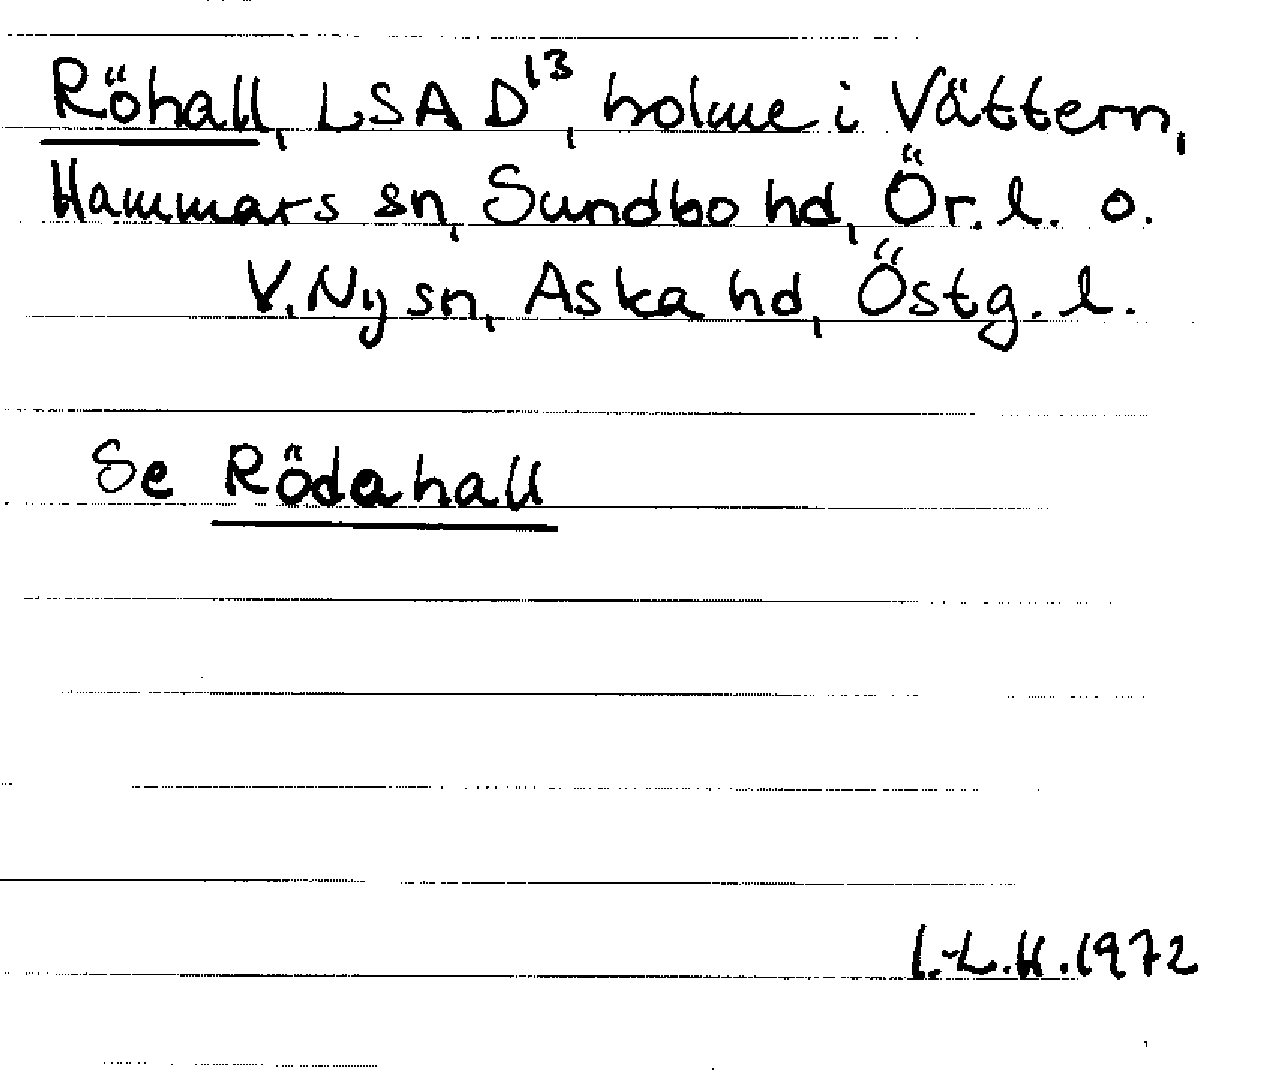 Röhall, LSA D¹³, holme i Vättern,
Hammars sn, Sundbo hd, Ör. l. o.
V. Ny sn, Aska hd, Östg. l.
Se Rödahall
I.-L.H. 1972